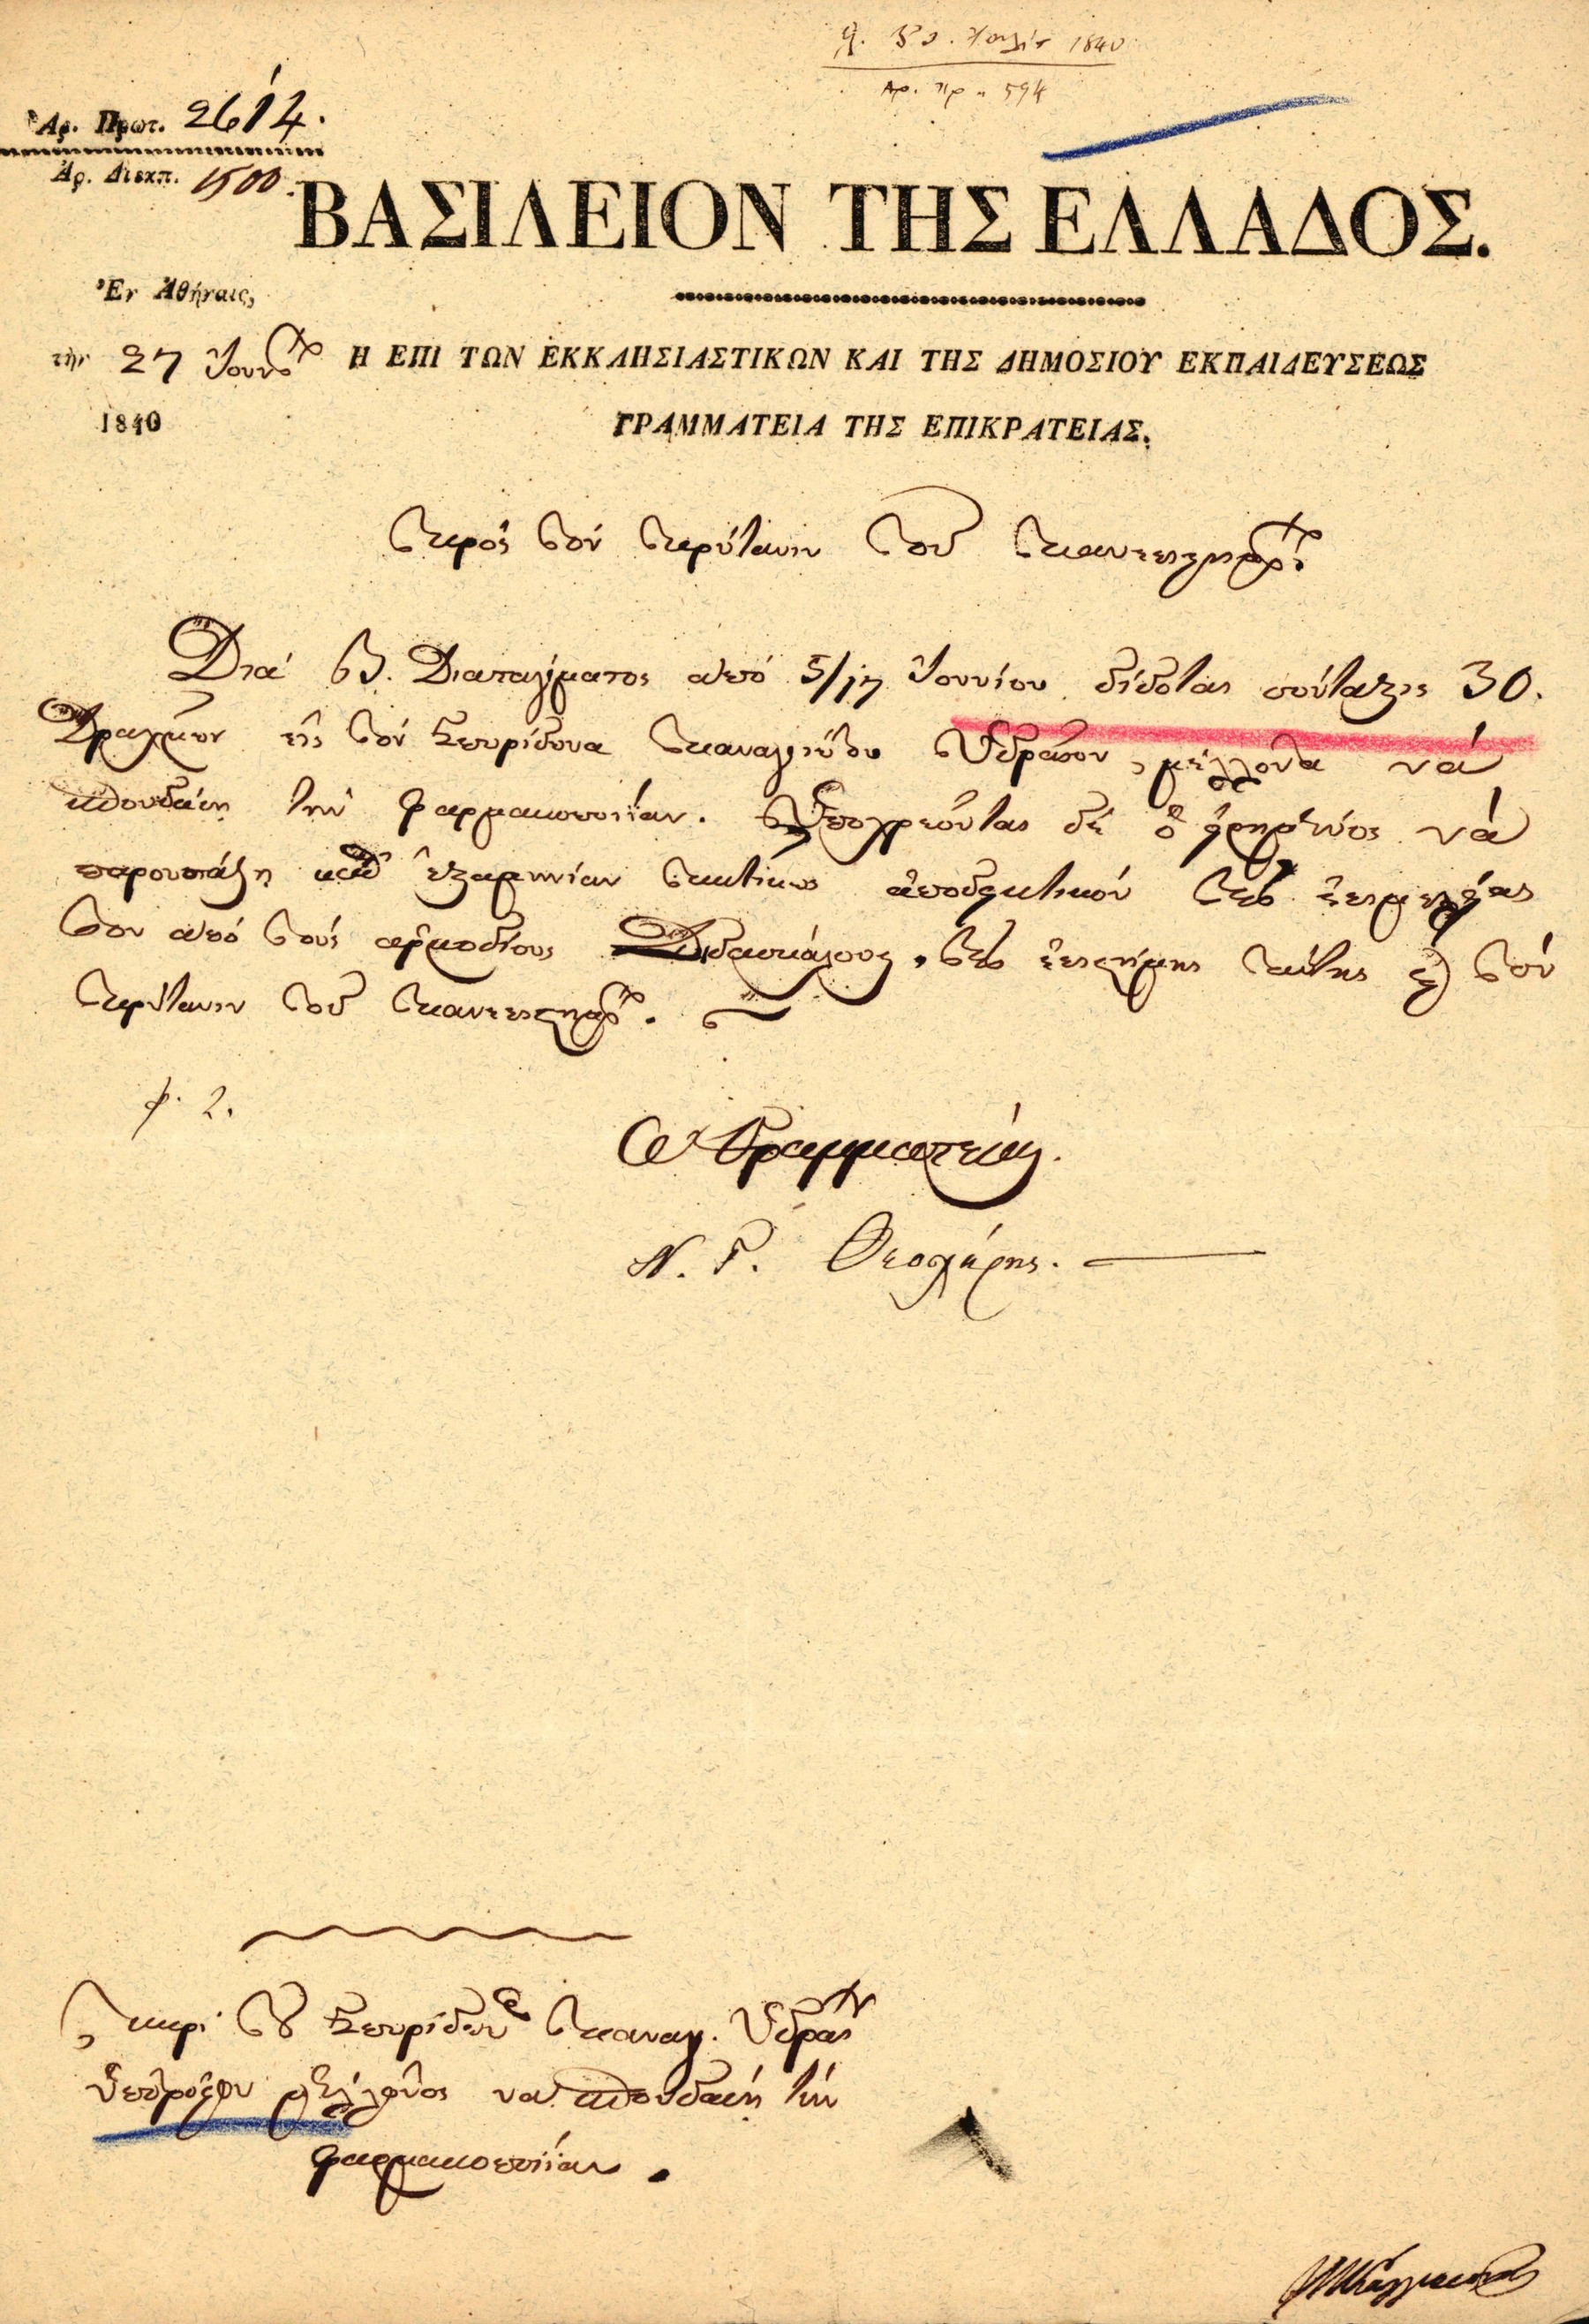 1840
Ἀρ. Πρ. 594
Ἀρ. Πρωτ. 2614.
Ἀρ. Διεκπ. 1500.
ΒΑΣΙΛΕΙΟΝ ΤΗΣ ΕΛΛΑΔΟΣ.
Ἐν Ἀθήναις,
τὴν 27 Ἰουν
Η ΕΠΙ ΤΩΝ ΕΚΚΛΗΣΙΑΣΤΙΚΩΝ ΚΑΙ ΤΗΣ ΔΗΜΟΣΙΟΥ ΕΚΠΑΙΔΕΥΣΕΩΣ
1840
ΓΡΑΜΜΑΤΕΙΑ ΤΗΣ ΕΠΙΚΡΑΤΕΙΑΣ.
Πρὸς τὸν Πρύτανιν τοῦ Πανεπιστημ.
Διὰ Β. Διατάγματος ἀπὸ 5/17 Ἰουνίου δίδοται σύνταξις 30.
Δραχμῶν εἰς τὸν Σπυρίδωνα Παναγιώτου Ὑδραῖον, μέλλοντα νὰ
σπουδάσῃ τὴν φαρμακοποιΐαν. Ὑποχρεοῦται δὲ ὁ νὰ
παρουσιάζῃ καθ' ἑξαμηνίαν τακτικῶς ἀποδεικτικὸν τῆς ἐπιμελείας
του ἀπὸ τοὺς ἁρμοδίους Διδασκάλους τῆς ἐπιστήμης ταύτης καὶ τὸν
Πρύτανιν τοῦ Πανεπιστημ.
φ. 2.
Ὁ Γραμματεὺς.
Ν. Γ. Θεοχάρης.
Περὶ τοῦ Σπυρίδων Παναγ. Ὑδραί
ὑποτρόφου μέλλοντος νὰ σπουδάσῃ τὴν
φαρμακοποιΐαν.